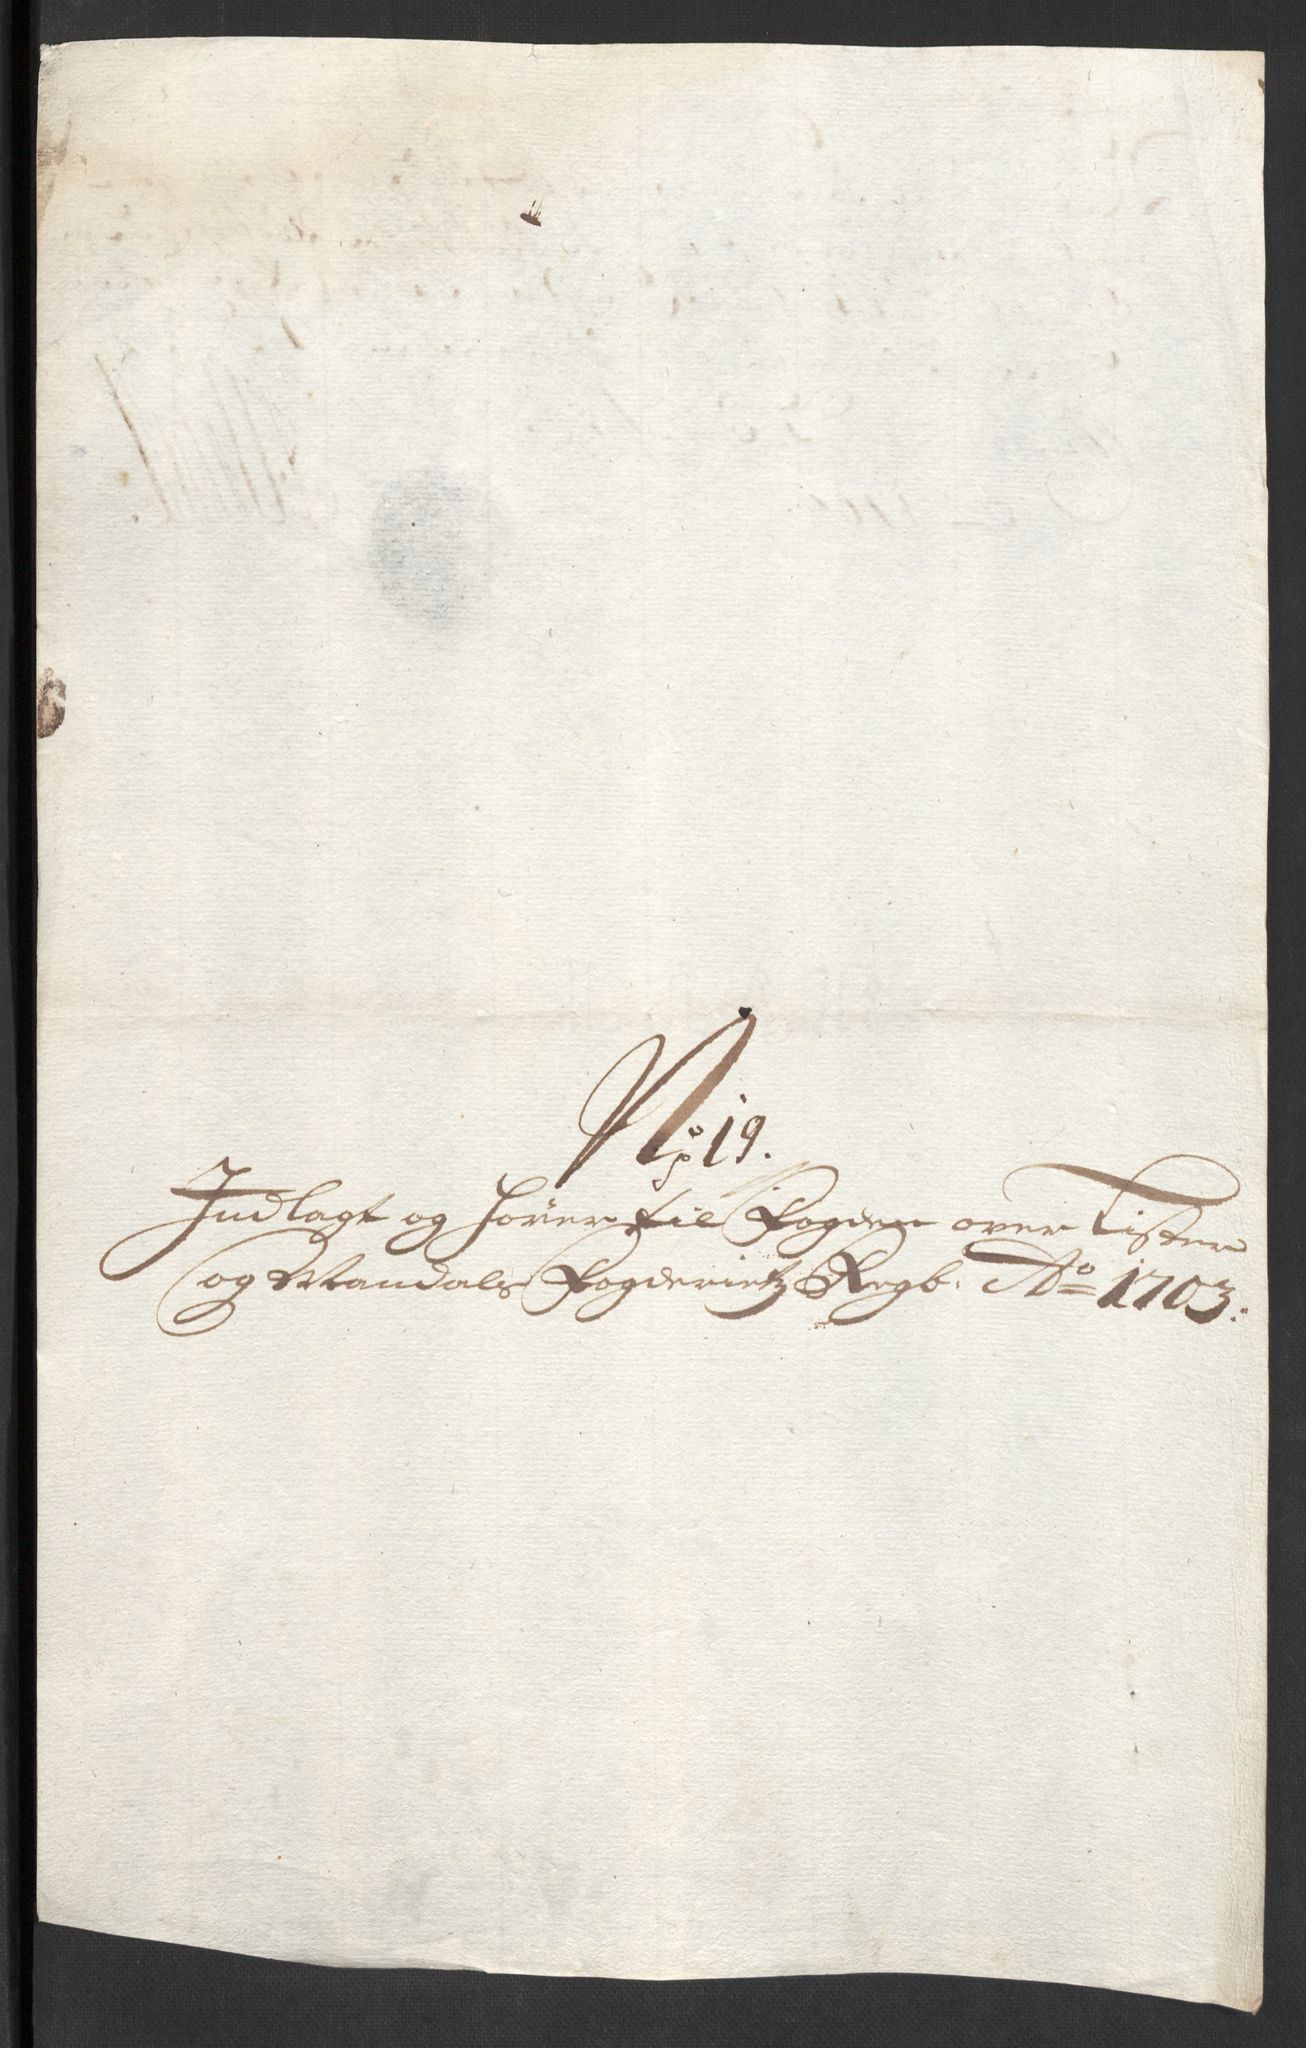 No 19.
Indlagt og hører til Fogden over Lister
og Mandals Fogderietz Regb: Ao 1703: